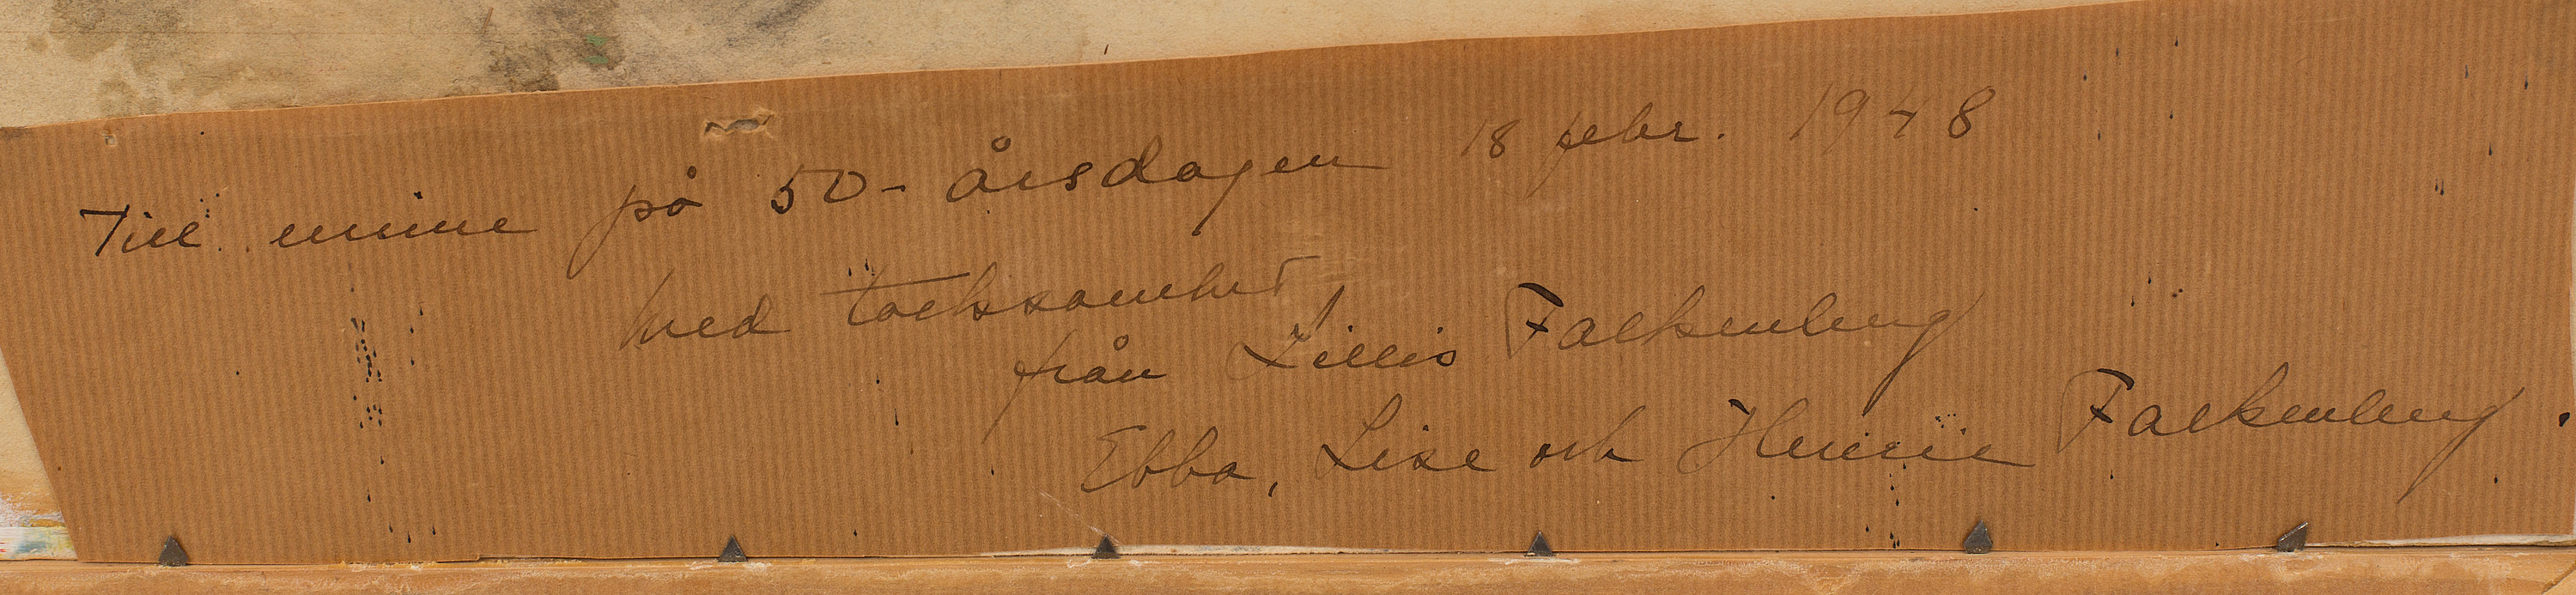 Till minne på 50-årsdagen 18 febr. 1948
med tacksamhet
från Lillis Falkenberg
Ebba, Lise och Henric Falkenberg.